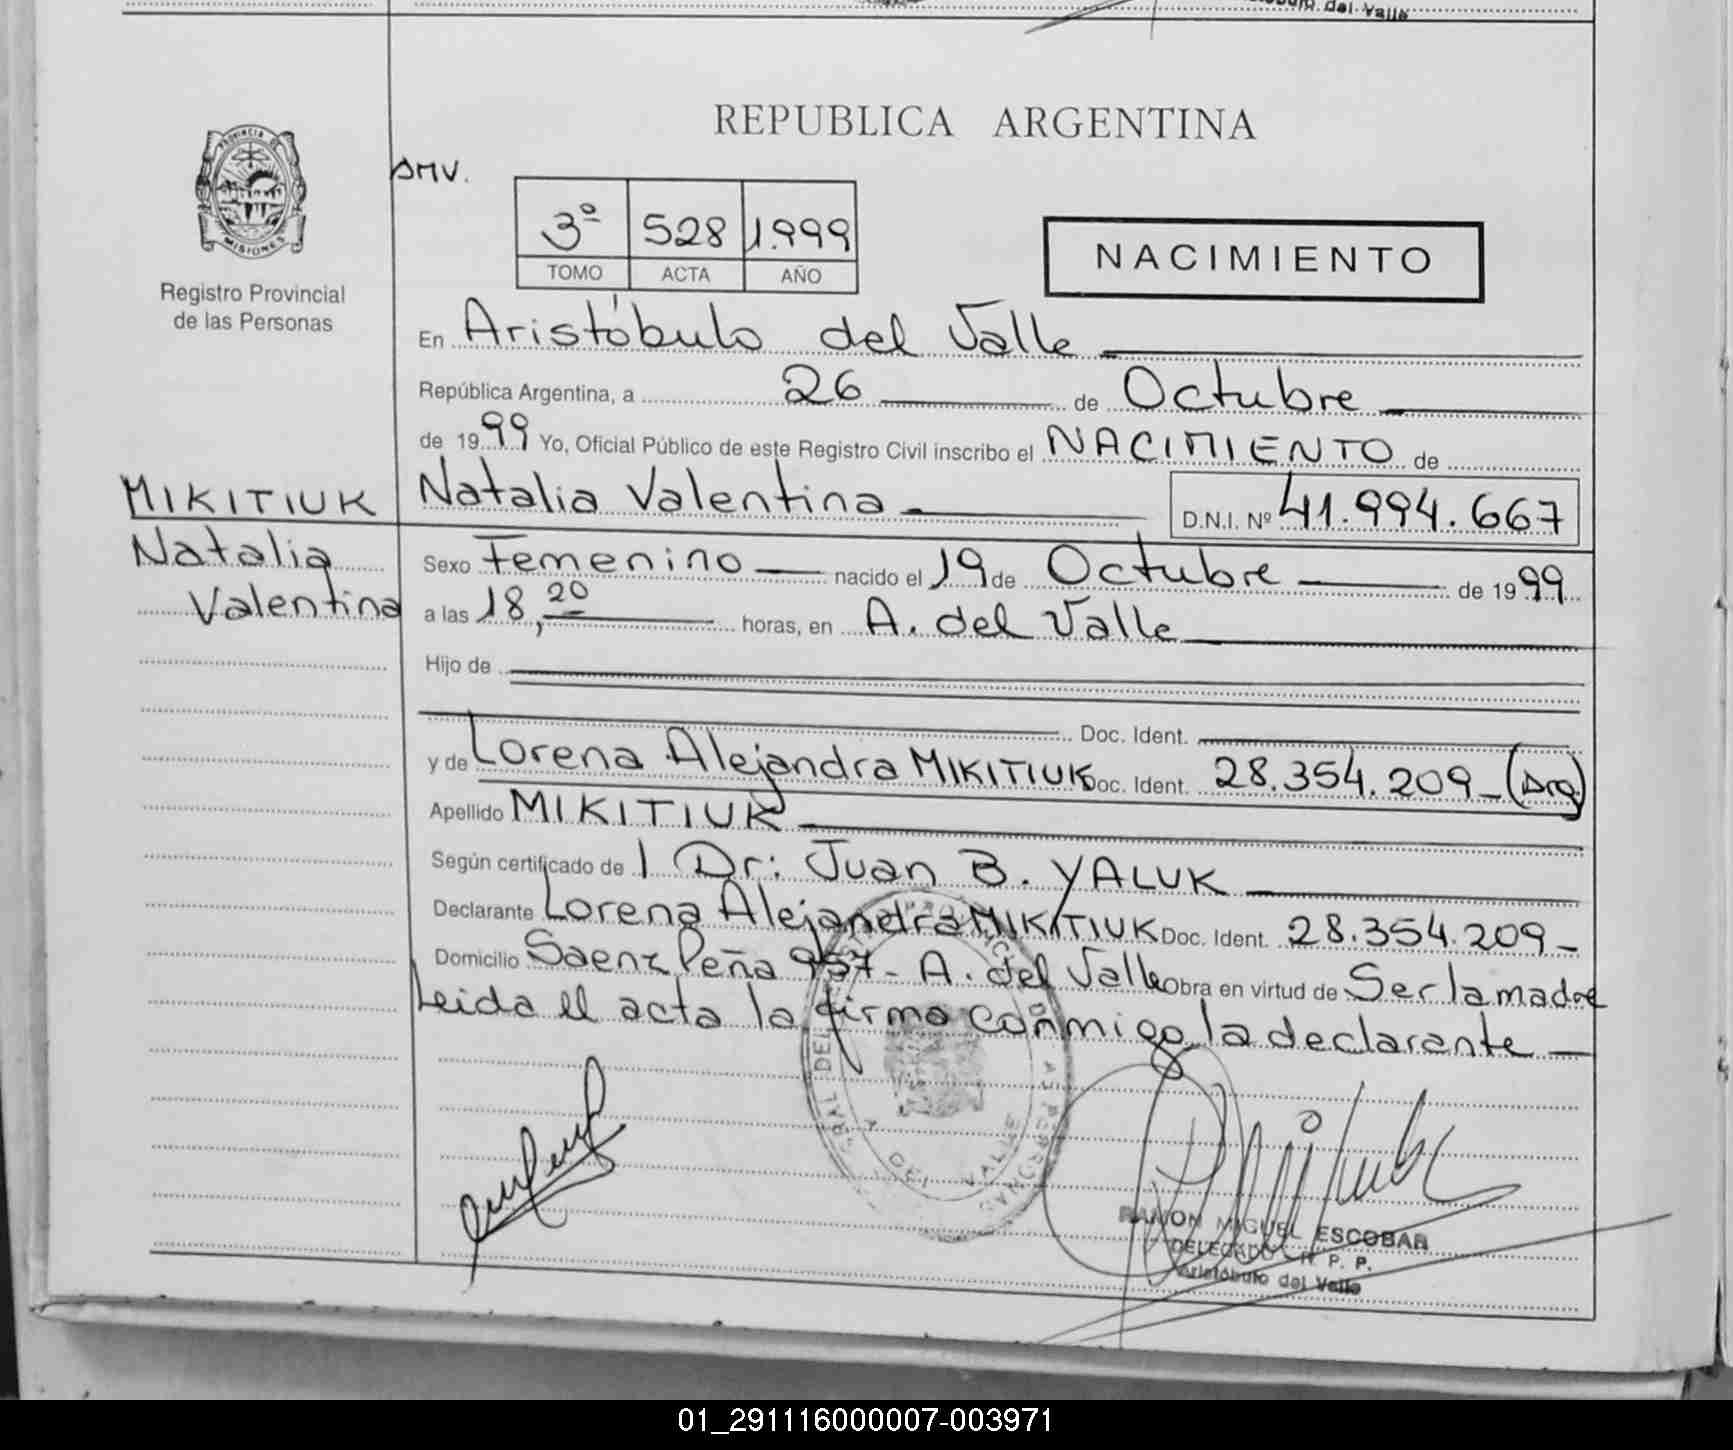 del Valle
REPUBLICA ARGENTINA
PROVINCIA DE
MISIONES
Registro Provincial
de las Personas
AMV.
3º 528 1.999
TOMO ACTA AÑO
NACIMIENTO
En Aristóbulo del Valle
República Argentina, a 26 de Octubre
de 1999 Yo, Oficial Público de este Registro Civil inscribo el NACIMIENTO de
MIKITIUK
Natalia
Valentina
Natalia Valentina D.N.I. Nº 41.994.667
Sexo Femenino nacido el 19 de Octubre de 1999
a las 18,20 horas, en A. del Valle
Hijo de
Doc. Ident.
y de Lorena Alejandra MIKITIUK Doc. Ident. 28.354.209_(Arg)
Apellido MIKITIUK
Según certificado de | Dr: Juan B. YALUK
Declarante Lorena Alejandra MIKITIUK Doc. Ident. 28.354.209_
Domicilio Saenz Peña 957- A. del Valle Obra en virtud de Ser la madre
Leida el acta la firma conmigo la declarante
A. DEL VALLE
RAMON MIGUEL ESCOBAR
DELEGADO R. P. P.
Aristóbulo del Valle
01_291116000007-003971